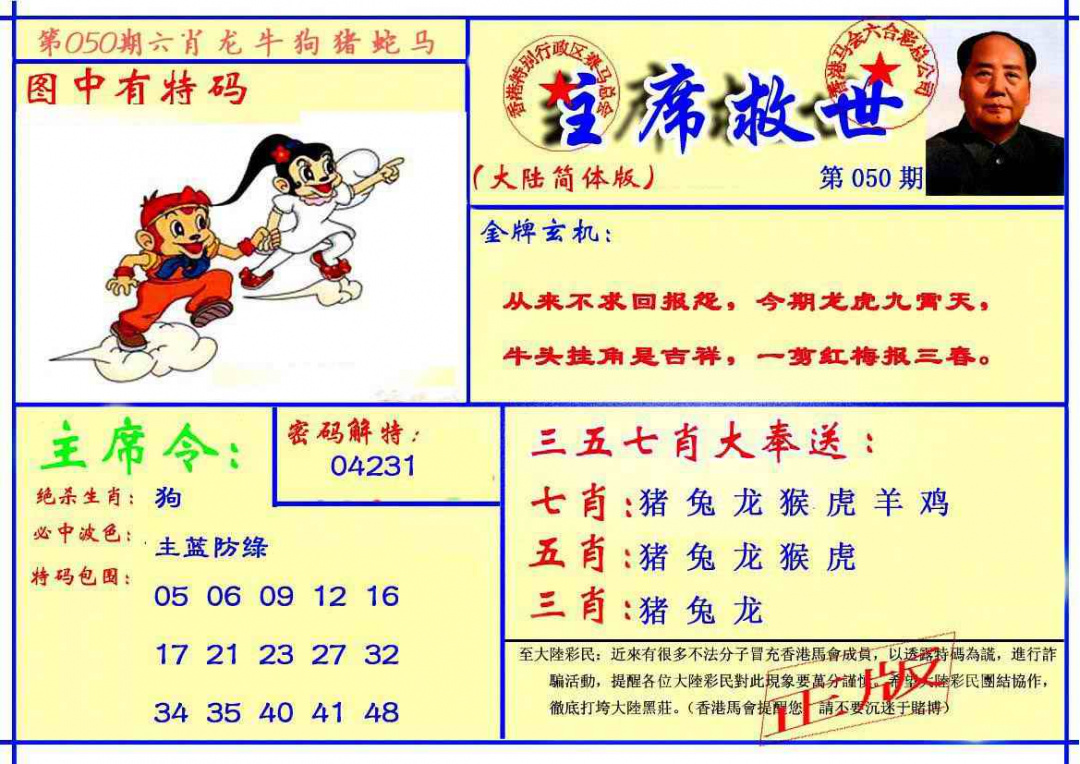 第050期六肖龙牛狗猪蛇马
图中有特码
香港特别行政区赛马总会
香港马会六合彩总公司
主席救世
（大陆简体版）
第 050 期
金牌玄机：
从来不求回报怨，今期龙虎九霄天，
牛头挂角是吉祥，一剪红梅报三春。
主席令：
绝杀生肖：狗
必中波色：主蓝防绿
特码包围：
05 06 09 12 16
17 21 23 27 32
34 35 40 41 48
密码解特：
04231
三五七肖大奉送：
七肖：猪兔龙猴虎羊鸡
五肖：猪兔龙猴虎
三肖：猪兔龙
至大陸彩民：近來有很多不法分子冒充香港馬會成員，以透露特码為謊，進行詐
騙活動，提醒各位大陸彩民對此現象要萬分謹慎。希望大陸彩民團結協作，
徹底打垮大陸黑莊。（香港馬會提醒您 請不要沉迷于賭博）
正版